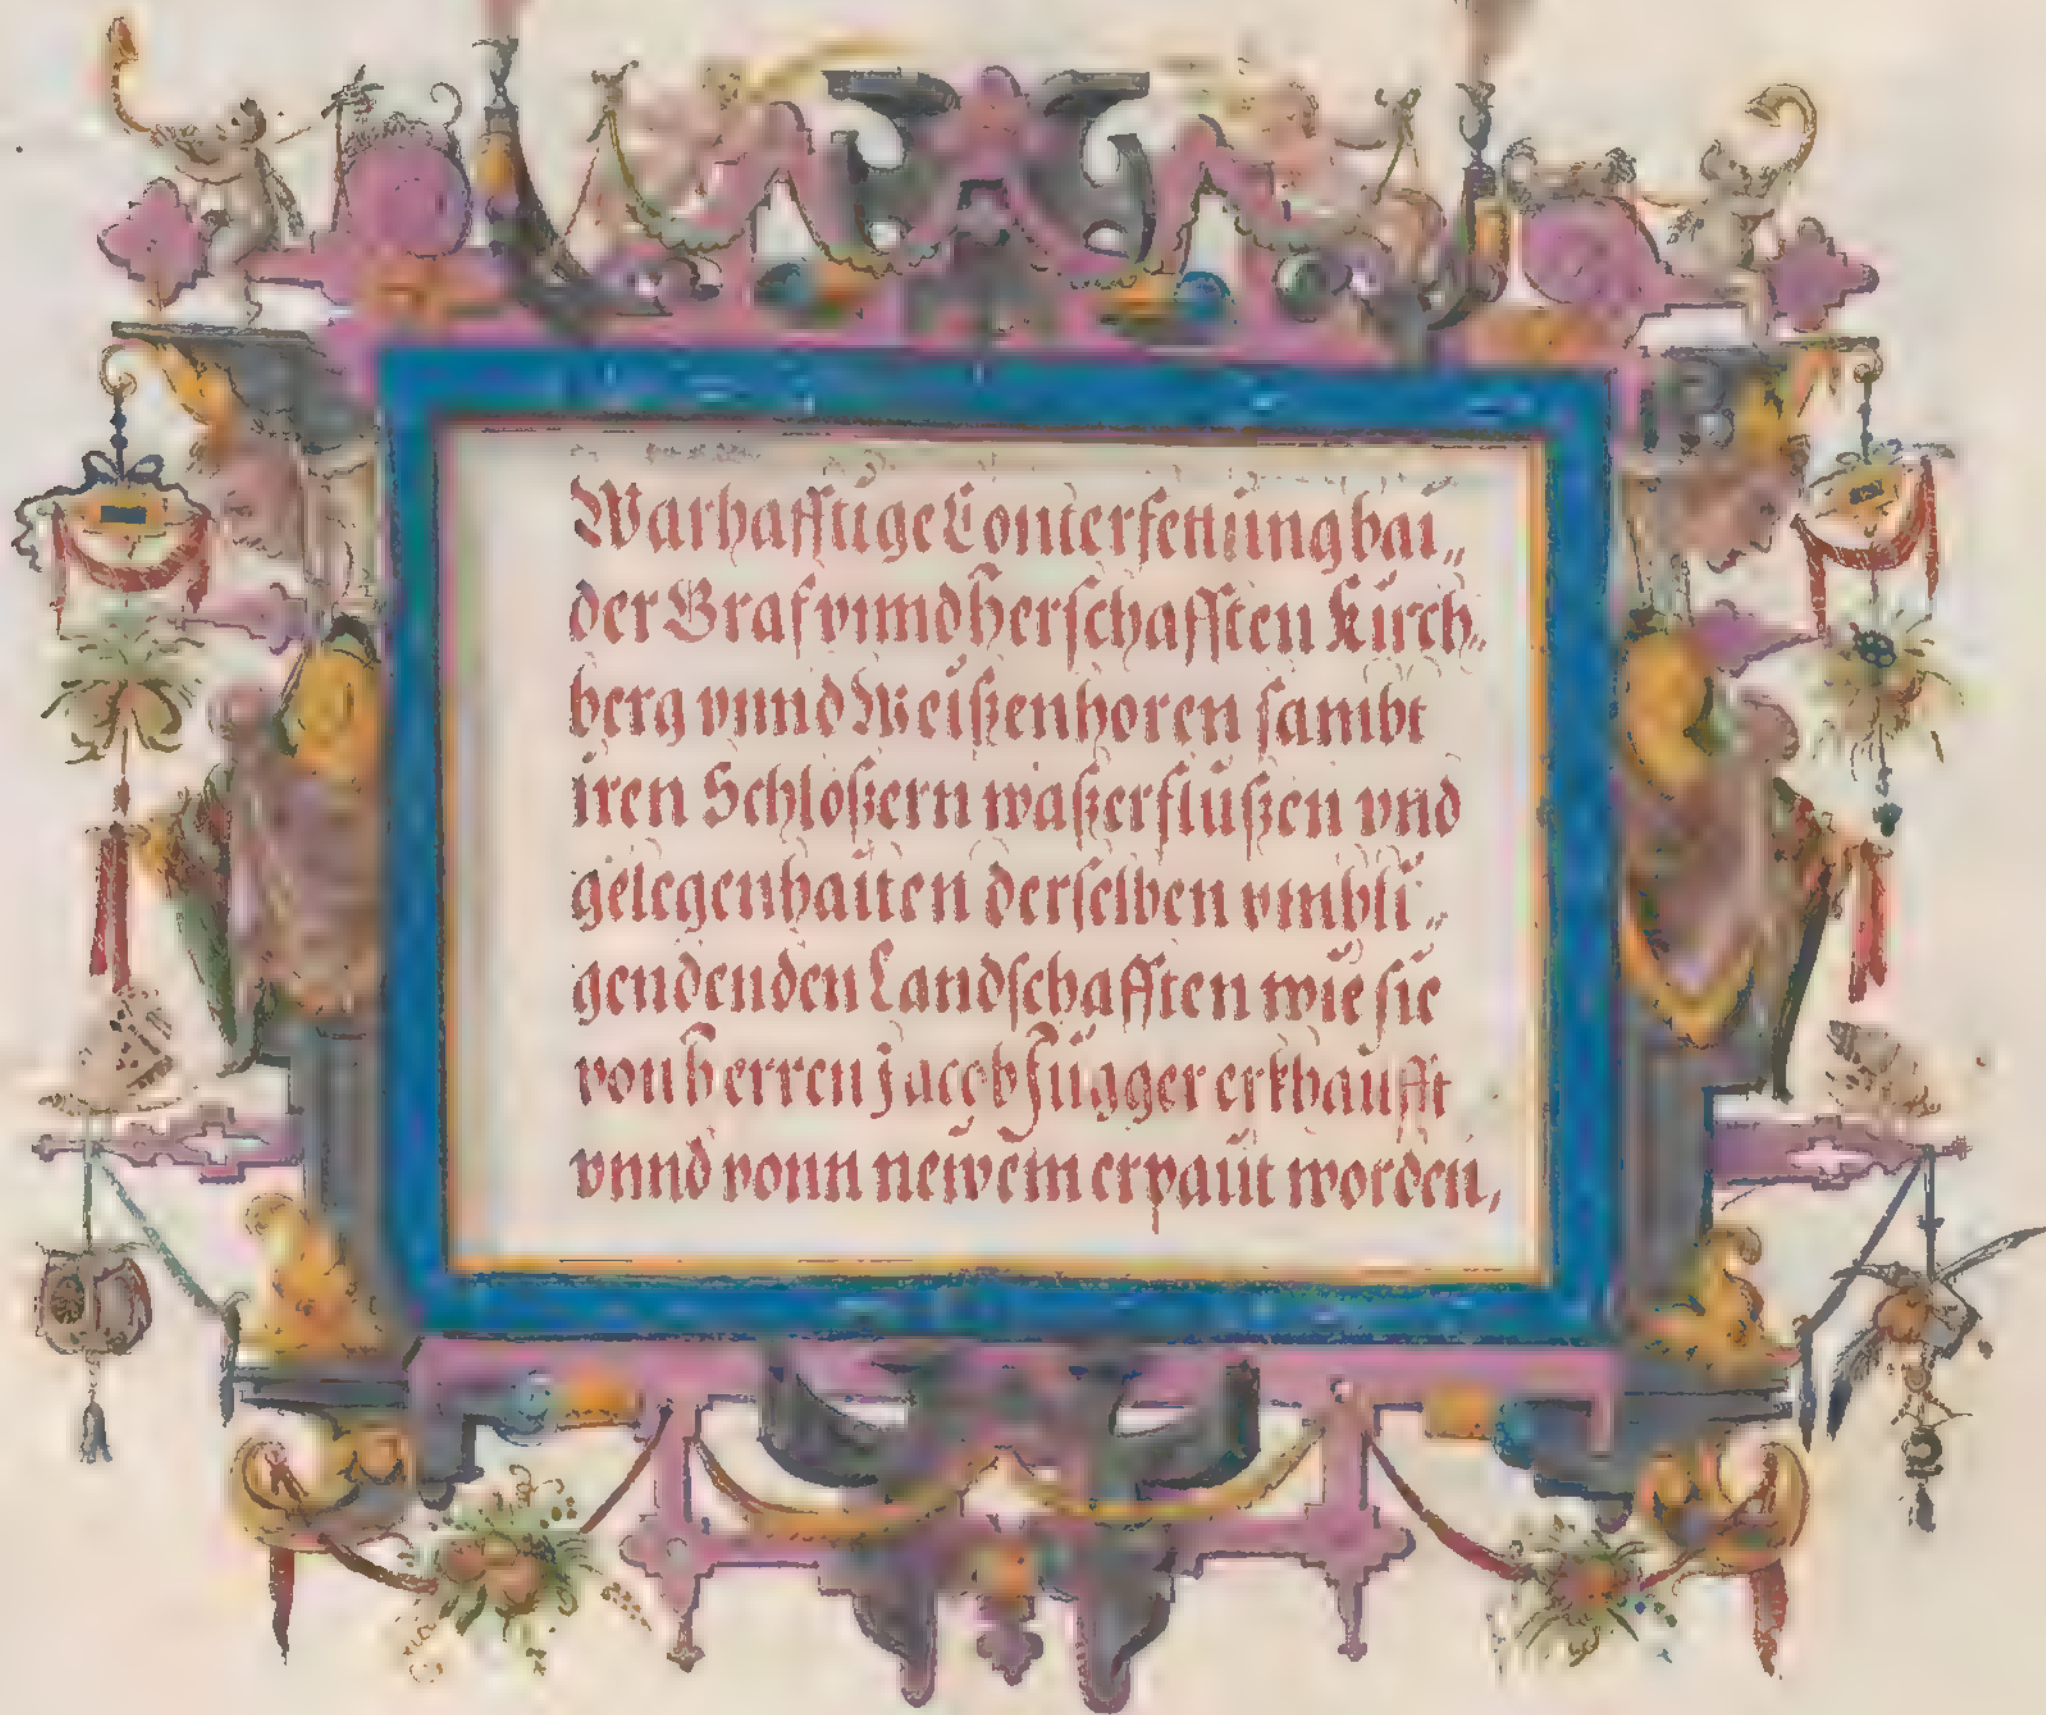 Warhafftige Conterfettung bai„
der Graf vnnd Herschafften Kirch„
berg vnnd Weißenhoren sambt
iren Schlößern waßerflüßen vnd
gelegenhaiten derselben vmbli„
gendenden Landschafften wie sie
von Herren Jacob Fugger erkhaufft
vnnd vonn newem erpaut worden,